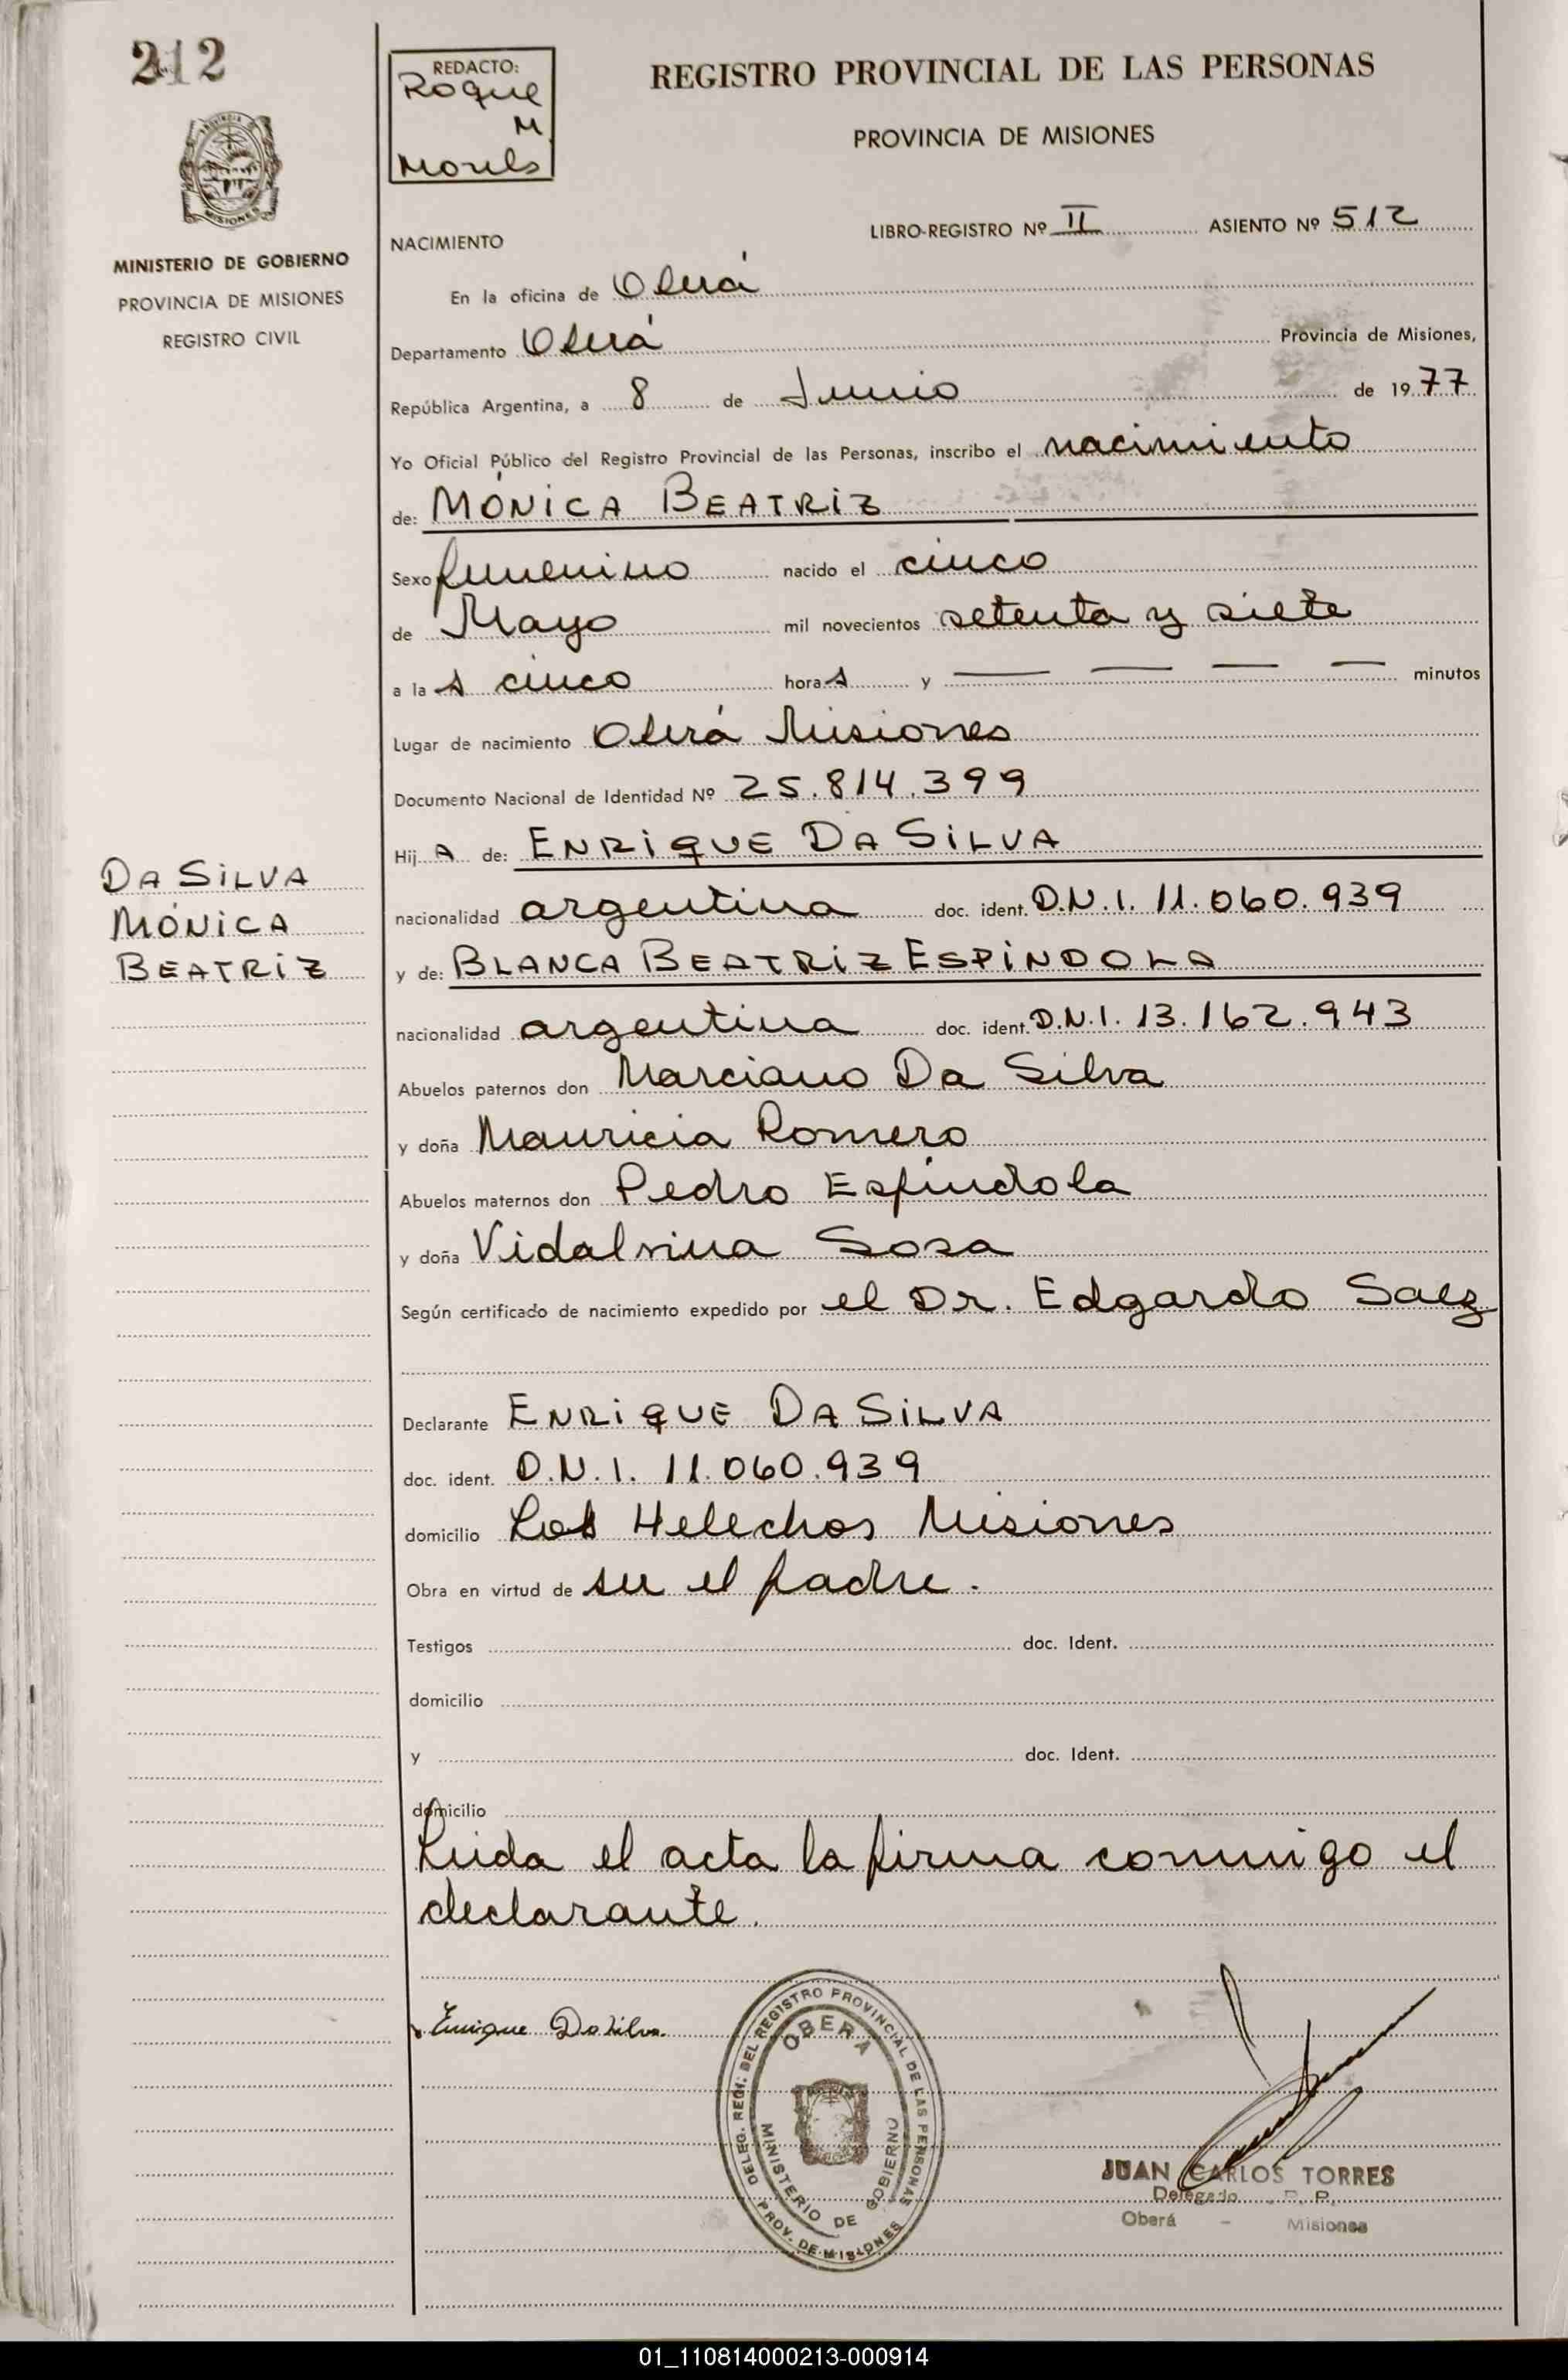 212
MISIONES
MINISTERIO DE GOBIERNO
PROVINCIA DE MISIONES
REGISTRO CIVIL
DA SILVA
MÓNICA
BEATRIZ
REDACTO:
Roque
M
REGISTRO PROVINCIAL DE LAS PERSONAS
PROVINCIA DE MISIONES
LIBRO-REGISTRO Nº II ASIENTO Nº 512
NACIMIENTO
En la oficina de Oberá
Departamento Oberá Provincia de Misiones,
República Argentina, a 8 de Junio de 1977
Yo Oficial Público del Registro Provincial de las Personas, inscribo el nacimiento
de: MÓNICA BEATRIZ
Sexo femenino nacido el cinco
de Mayo mil novecientos setenta y siete
a la s cinco hora s y — — — — minutos
Lugar de nacimiento Oberá Misiones
Documento Nacional de Identidad Nº 25.814.399
Hij A de: ENRIQUE DA SILVA
nacionalidad argentina doc. ident. D.N.I. 11.060.939
y de: BLANCA BEATRIZ ESPÍNDOLA
nacionalidad argentina doc. ident. D.N.I. 13.162.943
Abuelos paternos don Marciano Da Silva
y doña Mauricia Romero
Abuelos maternos don Pedro Espíndola
y doña Vidalvina Sosa
Según certificado de nacimiento expedido por el Dr. Edgardo Saez
Declarante ENRIQUE DA SILVA
doc. ident. D.N.I. 11.060.939
domicilio Los Helechos Misiones
Obra en virtud de ser el padre.
Testigos doc. Ident.
domicilio
y doc. Ident.
domicilio
Leida el acta la firma conmigo el
declarante.
Enrique DaSilva
DELEG. REGI. DEL REGISTRO PROVINCIAL DE LAS PERSONAS
OBERA
MINISTERIO DE GOBIERNO
PROV. DE MISIONES
JUAN CARLOS TORRES
Delegado R. P.
Oberá - Misiones
01_110814000213-000914